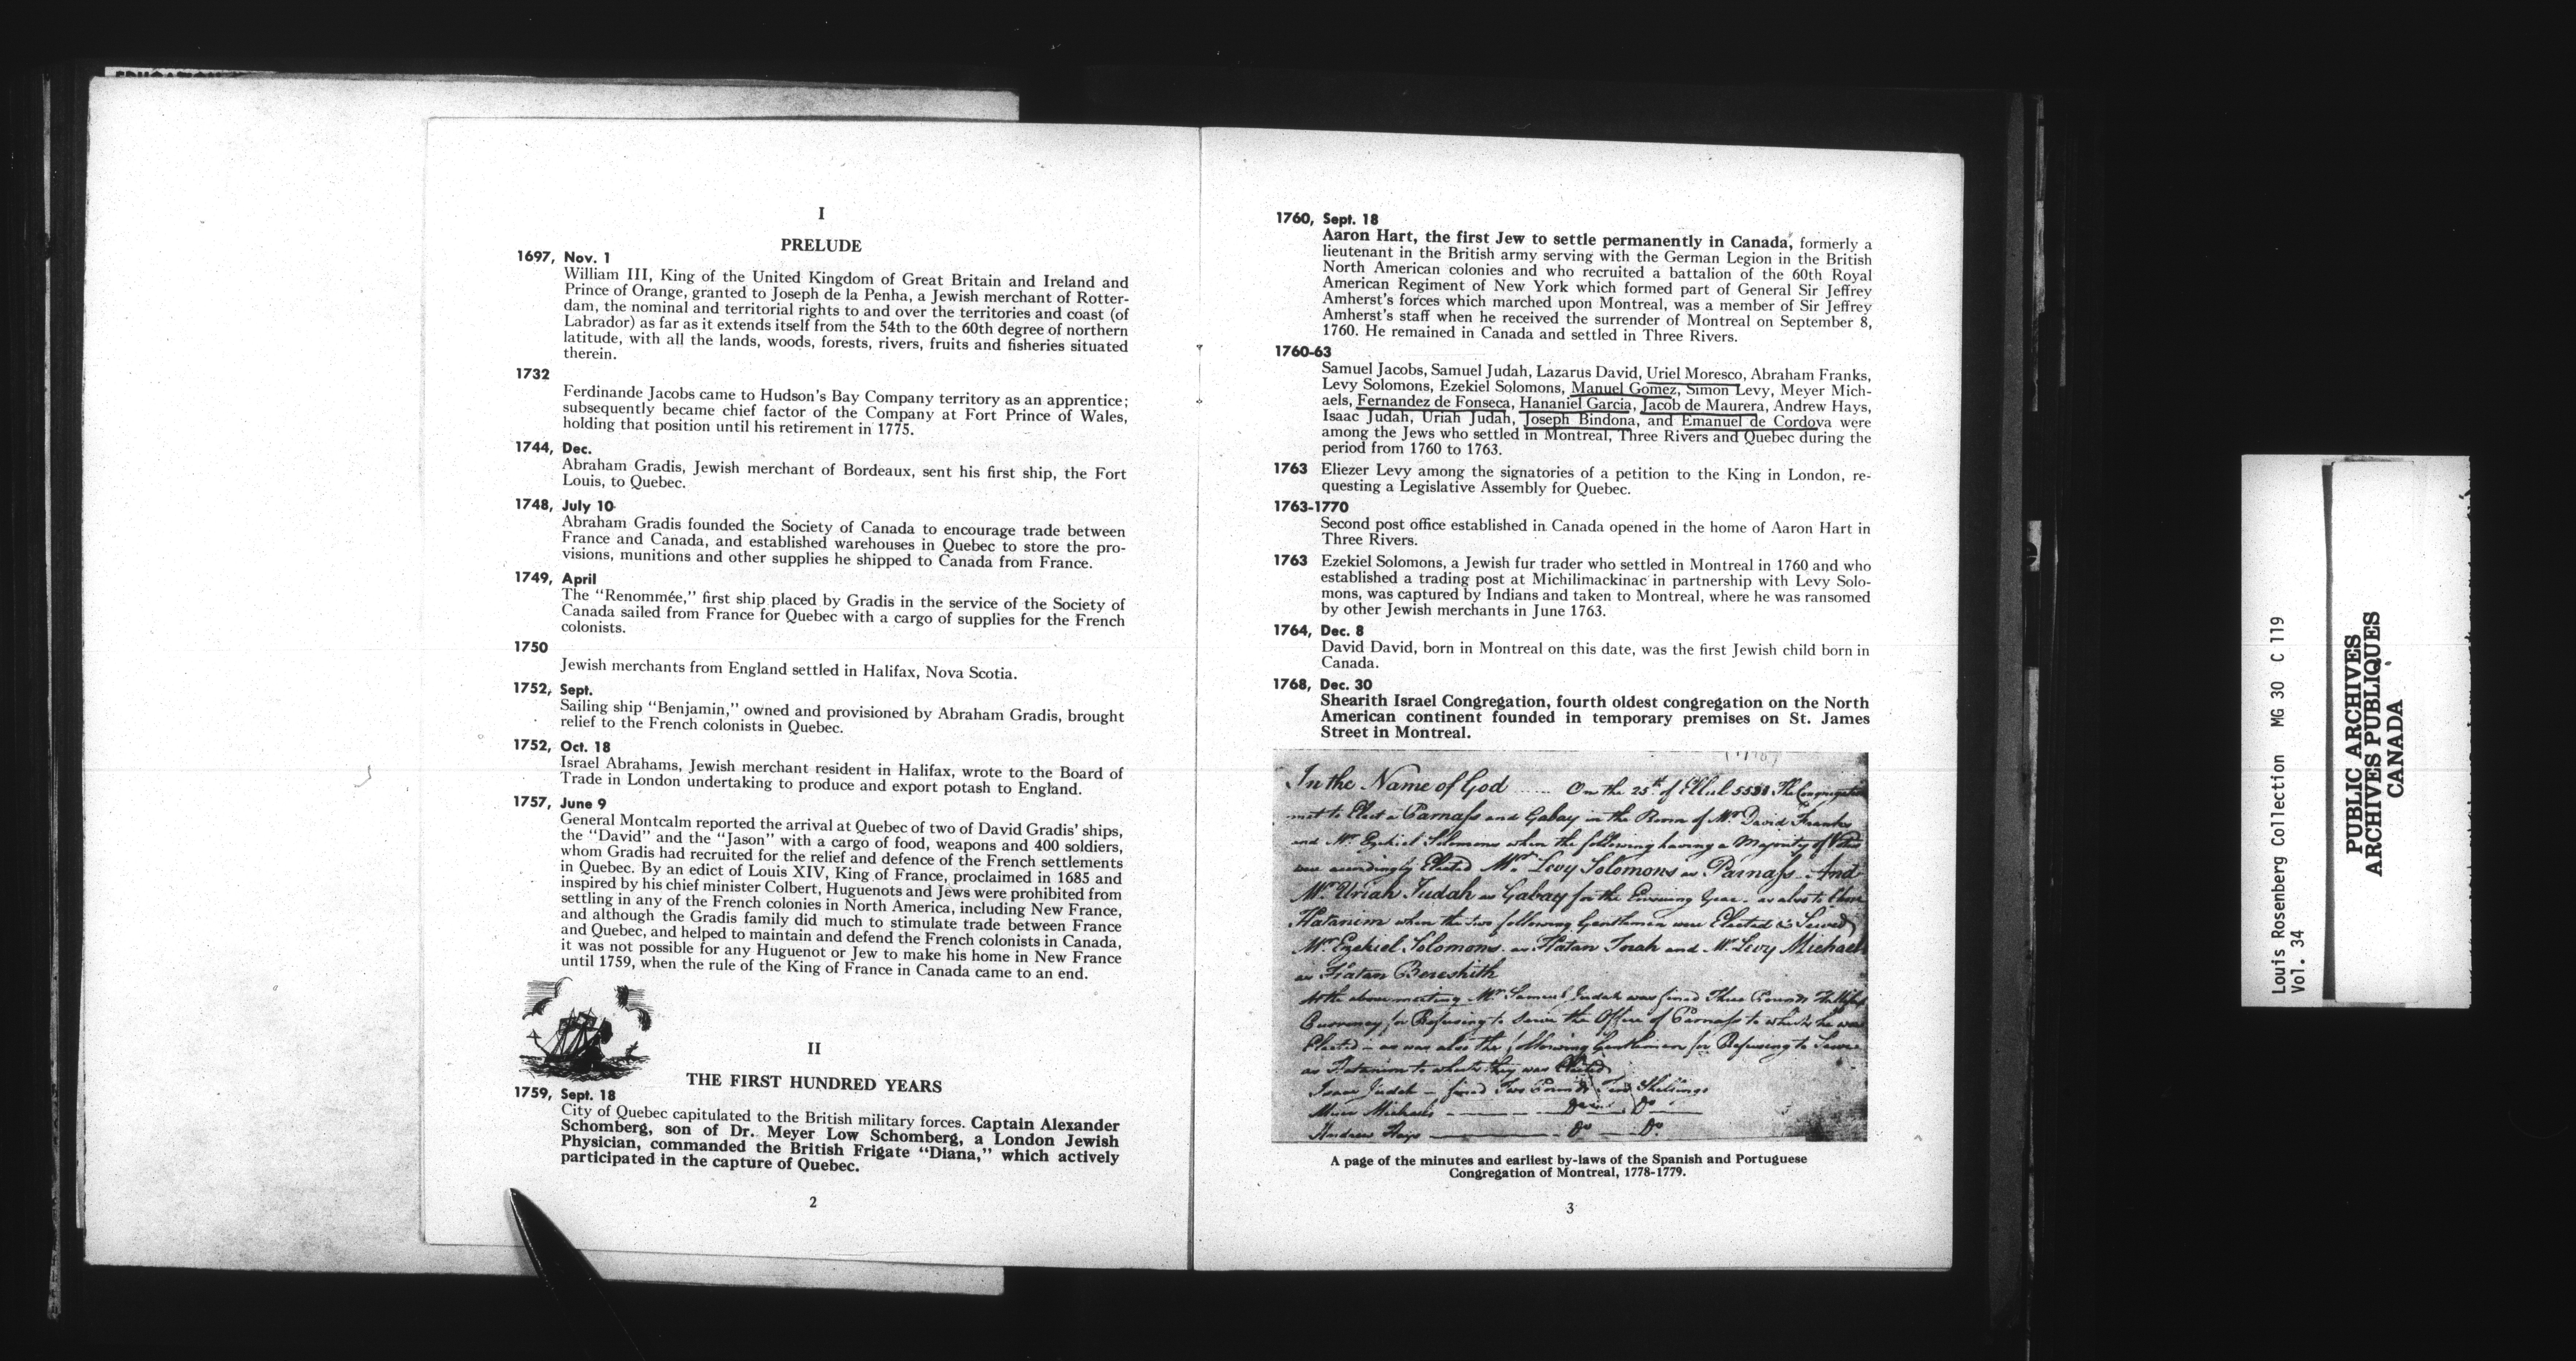 I
PRELUDE
1697, Nov. 1
William III, King of the United Kingdom of Great Britain and Ireland and
Prince of Orange, granted to Joseph de la Penha, a Jewish merchant of Rotter-
dam, the nominal and territorial rights to and over the territories and coast (of
Labrador) as far as it extends itself from the 54th to the 60th degree of northern
latitude, with all the lands, woods, forests, rivers, fruits and fisheries situated
therein.
1732
Ferdinande Jacobs came to Hudson's Bay Company territory as an apprentice;
subsequently became chief factor of the Company at Fort Prince of Wales,
holding that position until his retirement in 1775.
1744, Dec.
Abraham Gradis, Jewish merchant of Bordeaux, sent his first ship, the Fort
Louis, to Quebec.
1748, July 10
Abraham Gradis founded the Society of Canada to encourage trade between
France and Canada, and established warehouses in Quebec to store the pro-
visions, munitions and other supplies he shipped to Canada from France.
1749, April
The "Renommée," first ship placed by Gradis in the service of the Society of
Canada sailed from France for Quebec with a cargo of supplies for the French
colonists.
1750
Jewish merchants from England settled in Halifax, Nova Scotia.
1752, Sept.
Sailing ship "Benjamin," owned and provisioned by Abraham Gradis, brought
relief to the French colonists in Quebec.
1752, Oct. 18
Israel Abrahams, Jewish merchant resident in Halifax, wrote to the Board of
Trade in London undertaking to produce and export potash to England.
1757, June 9
General Montcalm reported the arrival at Quebec of two of David Gradis' ships,
the "David" and the "Jason" with a cargo of food, weapons and 400 soldiers,
whom Gradis had recruited for the relief and defence of the French settlements
in Quebec. By an edict of Louis XIV, King of France, proclaimed in 1685 and
inspired by his chief minister Colbert, Huguenots and Jews were prohibited from
settling in any of the French colonies in North America, including New France,
and although the Gradis family did much to stimulate trade between France
and Quebec, and helped to maintain and defend the French colonists in Canada,
it was not possible for any Huguenot or Jew to make his home in New France
until 1759, when the rule of the King of France in Canada came to an end.
II
THE FIRST HUNDRED YEARS
1759, Sept. 18
City of Quebec capitulated to the British military forces. Captain Alexander
Schomberg, son of Dr. Meyer Low Schomberg, a London Jewish
Physician, commanded the British Frigate "Diana," which actively
participated in the capture of Quebec.
2
1760, Sept. 18
Aaron Hart, the first Jew to settle permanently in Canada, formerly a
lieutenant in the British army serving with the German Legion in the British
North American colonies and who recruited a battalion of the 60th Royal
American Regiment of New York which formed part of General Sir Jeffrey
Amherst's forces which marched upon Montreal, was a member of Sir Jeffrey
Amherst's staff when he received the surrender of Montreal on September 8,
1760. He remained in Canada and settled in Three Rivers.
1760-63
Samuel Jacobs, Samuel Judah, Lazarus David, Uriel Moresco, Abraham Franks,
Levy Solomons, Ezekiel Solomons, Manuel Gomez, Simon Levy, Meyer Mich-
aels, Fernandez de Fonseca, Hananiel Garcia, Jacob de Maurera, Andrew Hays,
Isaac Judah, Uriah Judah, Joseph Bindona, and Emanuel de Cordova were
among the Jews who settled in Montreal, Three Rivers and Quebec during the
period from 1760 to 1763.
1763 Eliezer Levy among the signatories of a petition to the King in London, re-
questing a Legislative Assembly for Quebec.
1763-1770
Second post office established in Canada opened in the home of Aaron Hart in
Three Rivers.
1763 Ezekiel Solomons, a Jewish fur trader who settled in Montreal in 1760 and who
established a trading post at Michilimackinac in partnership with Levy Solo-
mons, was captured by Indians and taken to Montreal, where he was ransomed
by other Jewish merchants in June 1763.
1764, Dec. 8
David David, born in Montreal on this date, was the first Jewish child born in
Canada.
1768, Dec. 30
Shearith Israel Congregation, fourth oldest congregation on the North
American continent founded in temporary premises on St. James
Street in Montreal.
In the Name of God ..... On the 25th of Ellul The Congregation
met to Elect a Parnass and Gabay in the Room of Mr David Franks
and Mr Ezekiel Solomons when the following having a Majority of Votes
were accordingly Elected Mr Levy Solomons as Parnass And
Mr Uriah Judah as Gabay for the Ensuing Year - as also to
Hatanim when the two following Gentlemen were Elected & Served
Mr Ezekiel Solomons as Hatan Torah and Mr Levy Michaels
as Hatan Bereshith
At the above meeting Mr Samuel Judah was fined Three Pounds Hallifax
Currency for Refusing to Serve the Office of Parnass to which he was
Elected - as was also the following Gentlemen for Refusing to Serve
as Hatanim to which they was Elected
Isaac Judah - fined Two Pounds Ten Shillings
Michaels Do
Andrew Hays Do Do
A page of the minutes and earliest by-laws of the Spanish and Portuguese
Congregation of Montreal, 1778-1779.
3
Louis Rosenberg Collection MG 30 C 119
Vol. 34
PUBLIC ARCHIVES
ARCHIVES PUBLIQUES
CANADA